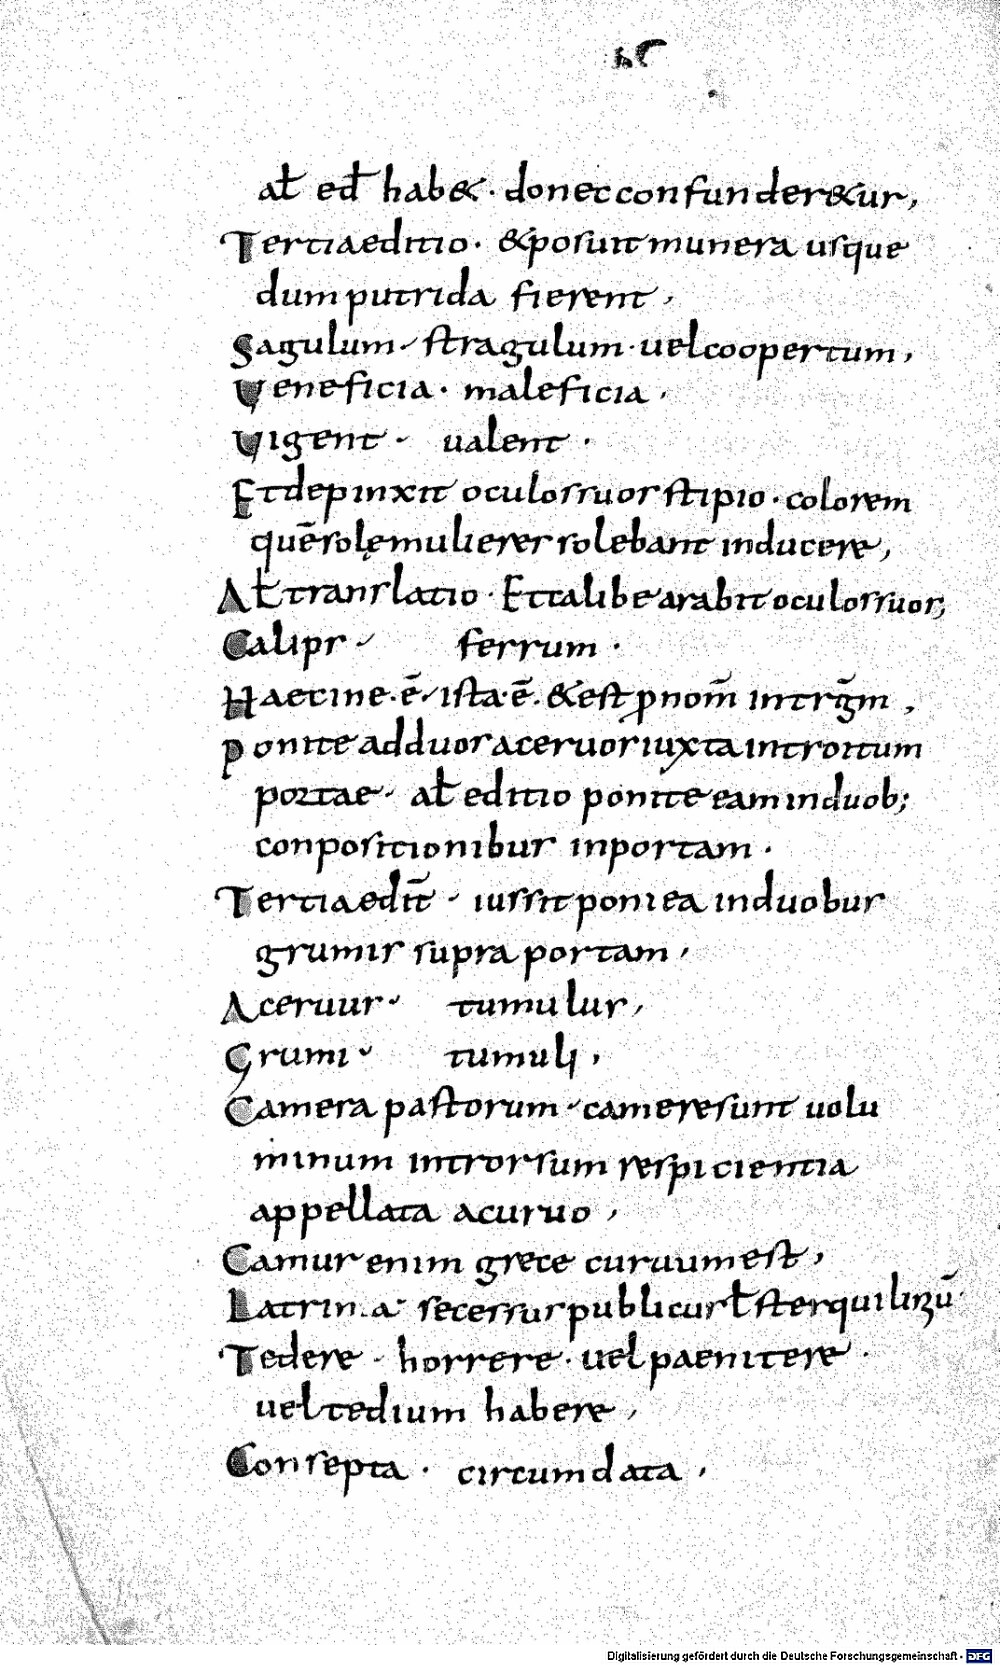 aƚ ed̄ hab&· donec confunder&ur,
Tertia editio· &posuit munera usque
dum putrida fierent,
Sagulum· stragulum· uel coopertum,
Veneficia· maleficia,
Vigent· ualent·
Et depinxit oculos suos stipio· colorem
quē solę mulieres solebant inducere,
Aƚ translatio· Et talibearabit oculos suos,
Calips· ferrum·
Haecine· ē· ista· ē· &est p̱nom̄ intrg̅m,
Ponite ad duos aceruos iuxta introitum
portae· aƚ editio ponite eam in duob;
conpositionibus in portam·
Tertia edit̄· iussit poni ea in duobus
grumis supra portam,
Aceruus· tumulus,
Grumi· tumuli,
Camera pastorum· camere sunt uolu
minum introrsum respicientia
appellata a curuo,
Camur enim grece curuum est,
Latrina· secessus publicus ƚ sterquiliniū·
Tedere· horrere· uel paenitere·
uel tedium habere,
Consepta· circumdata,
Digitalisierung gefördert durch die Deutsche Forschungsgemeinschaft - DFG